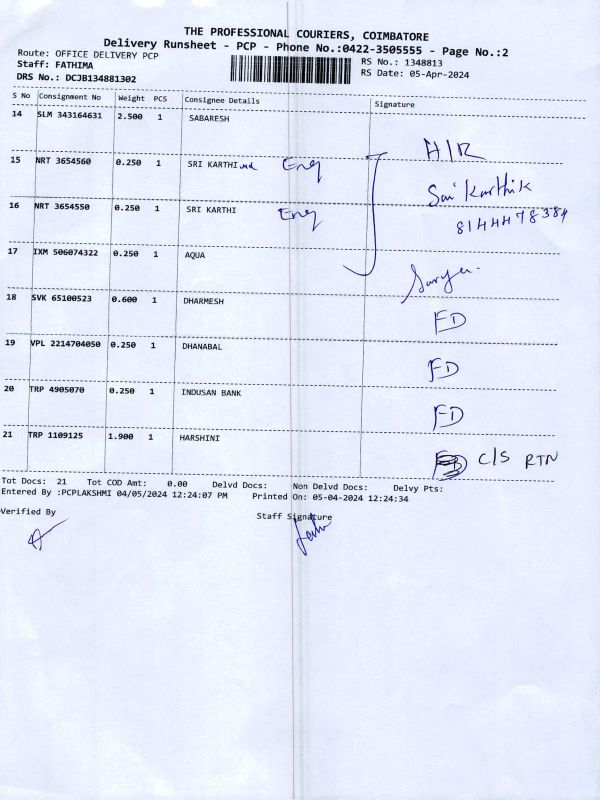 THE PROFESSIONAL COURIERS, COIMBATORE
Delivery Runsheet - PCP - Phone No.:0422-3505555 - Page No.:2
Route: OFFICE DELIVERY PCP
Staff: FATHIMA
DRS No.: DCJB134881302
RS No.: 1348813
RS Date: 05-Apr-2024
S No Consignment No Weight PCS Consignee Details Signature
14 SLM 343164631 2.500 1 SABARESH H/R
15 NRT 3654560 0.250 1 SRI KARTHI Eng Sai Karthik
16 NRT 3654550 0.250 1 SRI KARTHI Eng 8144478384
17 IXM 506074322 0.250 1 AQUA Surya
18 SVK 65100523 0.600 1 DHARMESH FD
19 VPL 2214704050 0.250 1 DHANABAL FD
20 TRP 4905070 0.250 1 INDUSAN BANK FD
21 TRP 1109125 1.900 1 HARSHINI C/S RTN
Tot Docs: 21 Tot COD Amt: 0.00 Delvd Docs: Non Delvd Docs: Delvy Pts:
Entered By :PCPLAKSHMI 04/05/2024 12:24:07 PM Printed On: 05-04-2024 12:24:34
Verified By Staff Signature